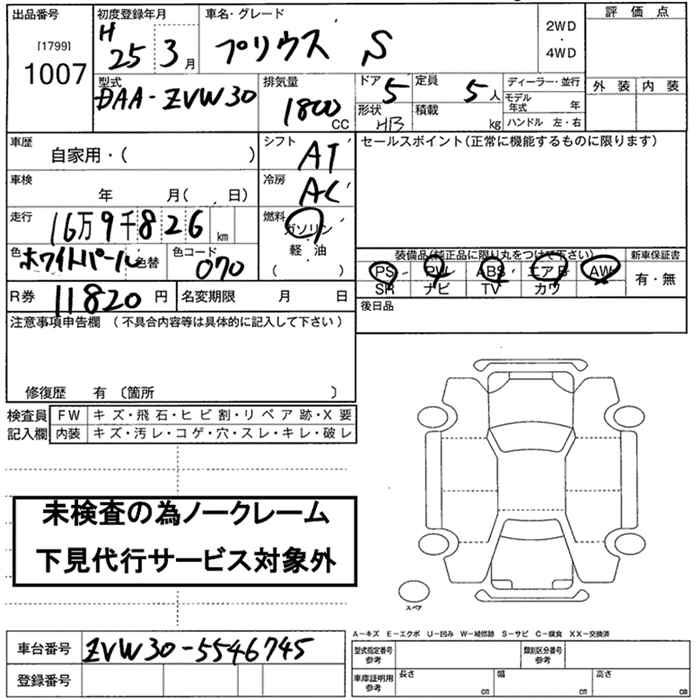 出品番号 初度登録年月 車名・グレード 評価点
[1799] H 25 3月 プリウス S 2WD・4WD
1007
型式 排気量 ドア 定員 ディーラー・並行 外装 内装
DAA-ZVW30 1800 CC 5 5人 モデル年式 年
形状 HB 積載 kg ハンドル 左・右
車歴 自家用・( ) シフト AT セールスポイント(正常に機能するものに限ります)
車検 年 月( 日) 冷房 AC
走行 16万9千826km 燃料 ガソリン
軽・油
( )
色 ホワイトパール 色替 色コード 070
装備品(純正品に限り丸をつけて下さい) 新車保証書
PS PW ABS エアB AW 有・無
SR ナビ TV カワ
R券 11820円 名変期限 月 日 後日品
注意事項申告欄 (不具合内容等は具体的に記入して下さい)
修復歴 有 〔箇所 〕
検査員記入欄 FW キズ・飛石・ヒビ割・リペア跡・X要
内装 キズ・汚レ・コゲ・穴・スレ・キレ・破レ
未検査の為ノークレーム
下見代行サービス対象外
スペア
A-キズ E-エクボ U-凹み W-補修跡 S-サビ C-腐食 XX-交換済
車台番号 ZVW30-5546745 型式指定番号参考 類別区分番号参考
登録番号 車庫証明用参考 長さ cm 幅 cm 高さ cm